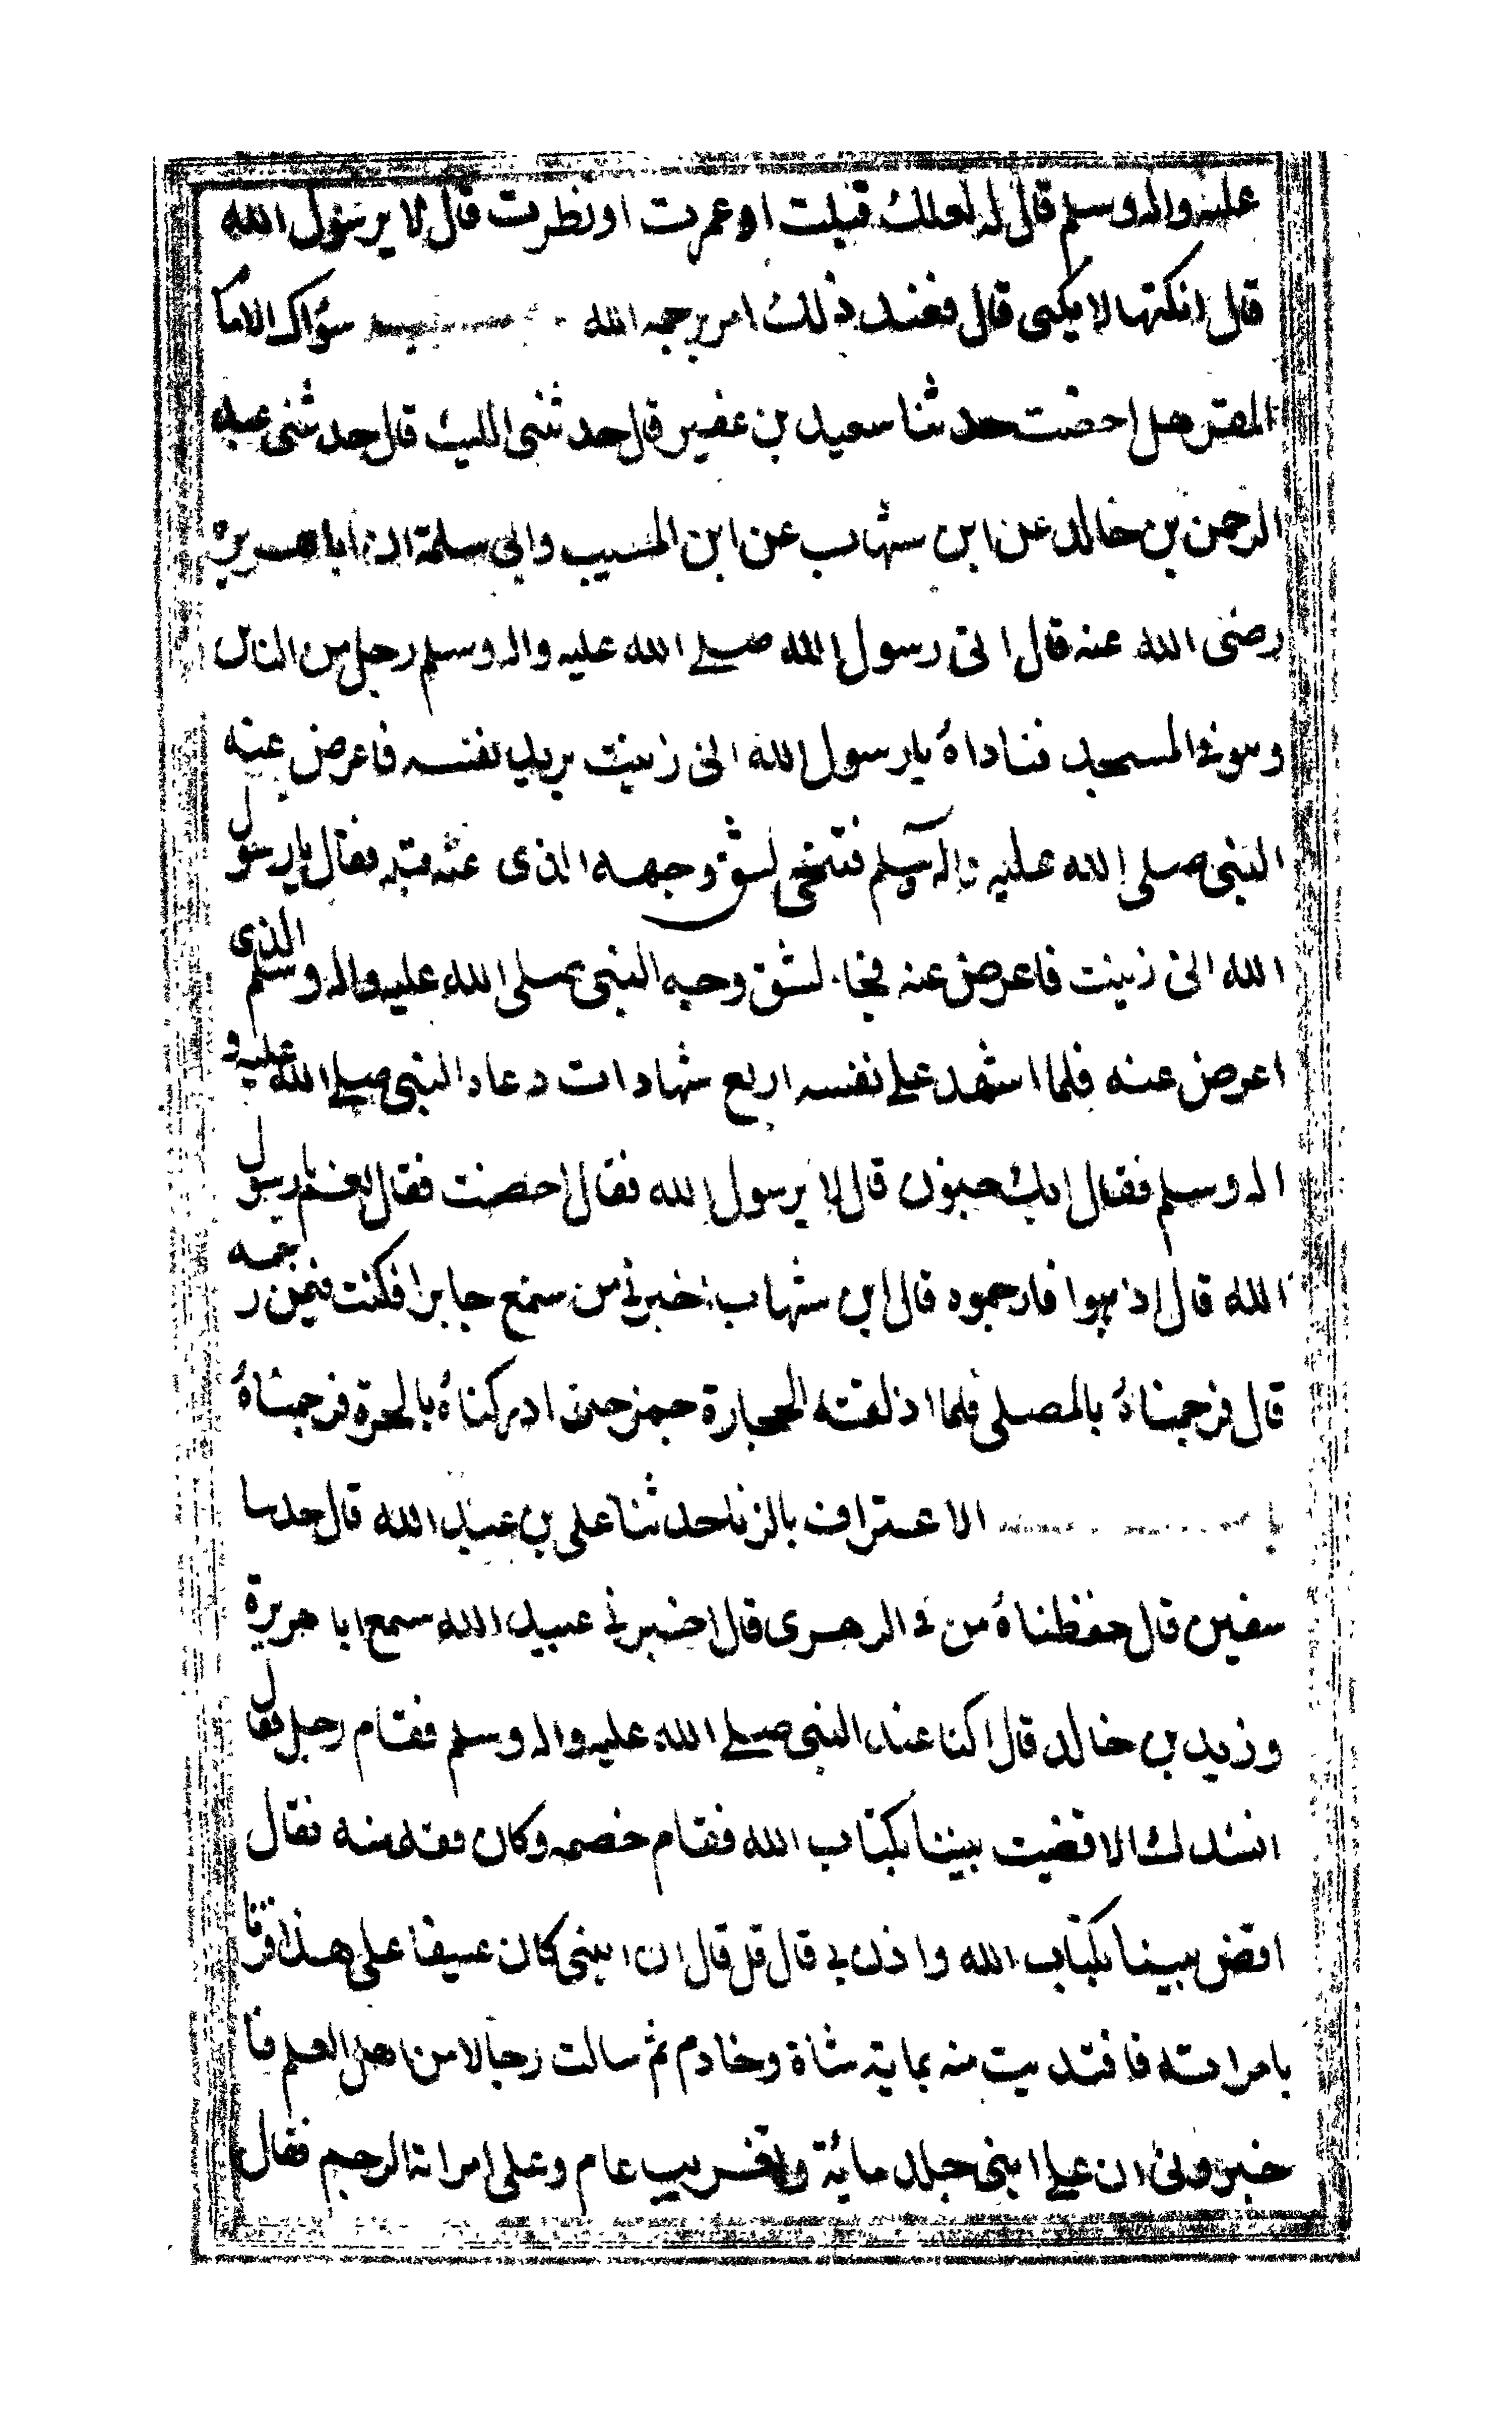 عليه واله وسلم قال له لعلك قبلت او غمزت او نظرت قال لا يرسول الله
قال انكتها لا يكنى قال فعند ذلك امر برجمه الله سؤاك الاما
المقر هل احصنت حدثنا سعيد بن عفير قال حدثنى الليث قال حدثنى عبد
الرحمن بن خالد عن ابن شهاب عن ابن المسيب وابي سلمة ان ابا هريرة
رضى الله عنه قال اتى رسول الله صلى الله عليه واله وسلم رجل من الناس
وهو في المسجد فناداه يارسول الله انى زنيت يريد نفسه فاعرض عنه
النبى صلى الله عليه واله وسلم فتنحى لشق وجهه الذى عنه قبله فقال يارسول
الله انى زنيت فاعرض عنه فجا لشق وجه النبى صلى الله عليه واله وسلم الذى
اعرض عنه فلما اشهد على نفسه اربع شهادات دعاه النبى صلى الله عليه و
اله وسلم فقال ابك جنون قال لا يرسول الله فقال احصنت فقال نعم يارسول
الله قال اذهبوا فارجموه قال ابن شهاب اخبرني من سمع جابرا فكنت فيمن رجمه
قال فرجمناه بالمصلى فلما اذلقته الحجارة جمز حتى ادركناه بالحرة فرجمناه
الاعتراف بالزنا حدثنا على بن عبد الله قال حدثنا
سفين قال حفظناه من في الزهرى قال اخبرني عبيد الله سمع ابا هريرة
وزيد بن خالد قال كنا عند النبى صلى الله عليه واله وسلم فقام رجل فقال
انشدك الا قضيت بيننا بكتاب الله فقام خصمه وكان فقه منه فقال
اقض بيننا بكتاب الله واذن لي قال قل قال ان ابنى كان عسيفا على هذا فزنا
بامراته فافتديت منه بماية شاة وخادم ثم سالت رجالا من اهل العلم فا
خبروني ان على ابنى جلد ماية وتغريب عام وعلى امراته الرجم فقال